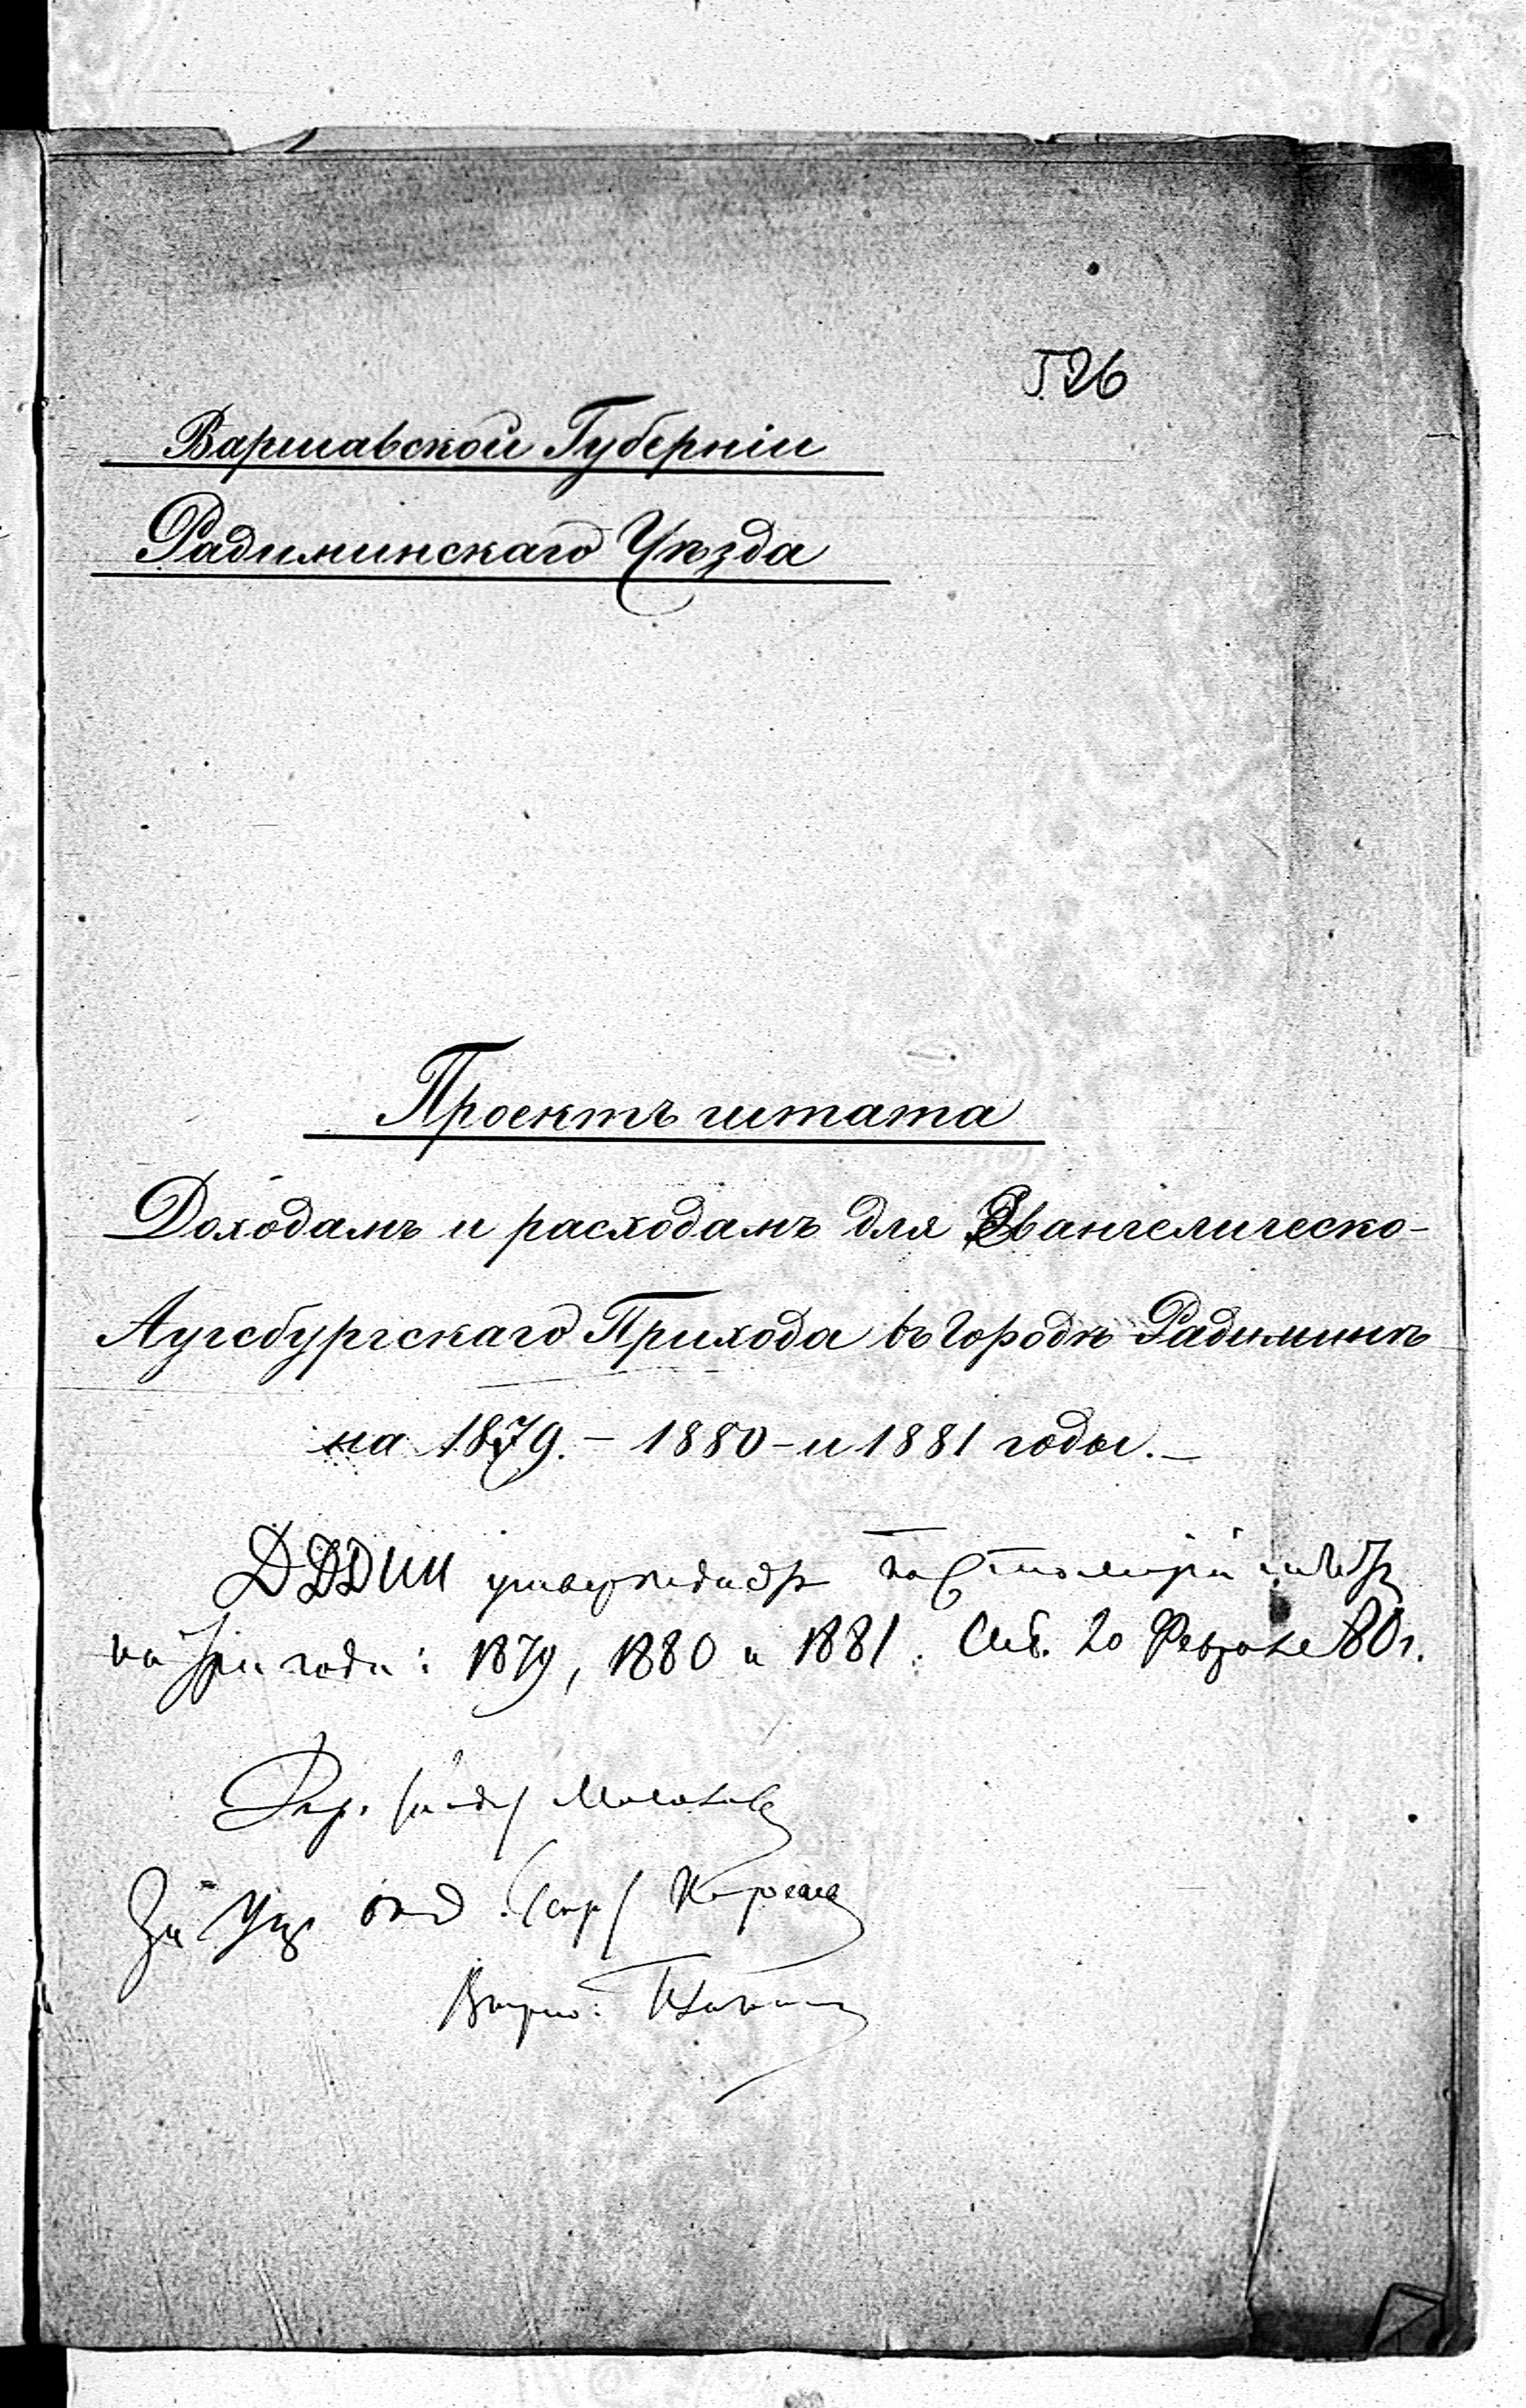 526
Варшавской Губерніи
Радиминскаго Уѣзда
Проектъ штата
Доходамъ и расходамъ для Евангелическо-
Аугсбургскаго Прихода въ Городѣ Радиминѣ
на 1879. – 1880 – и 1881 годы. –
ДДДИИ утверждаетъ настоящій штатъ
на три года: 1879, 1880 и 1881. Спб. 20 Февраля 80 г.
Дир.
За Упр. отд.